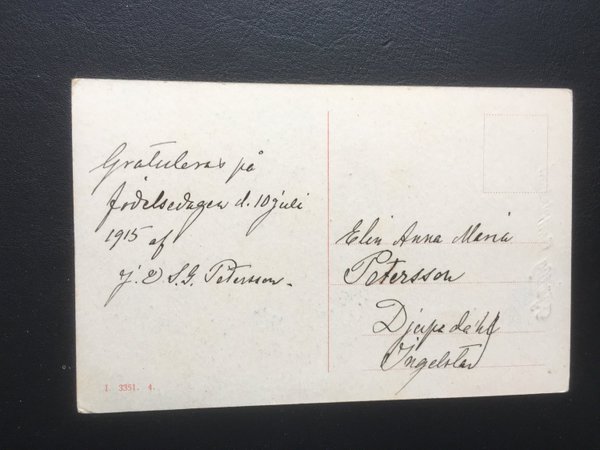 Gratuleras på
födelsedagen d. 10 juli
1915 af
J. O S. G. Petersson.
Elin Anna Maria
Petersson
Djupadahl
Ingelstad
I. 3351. 4.